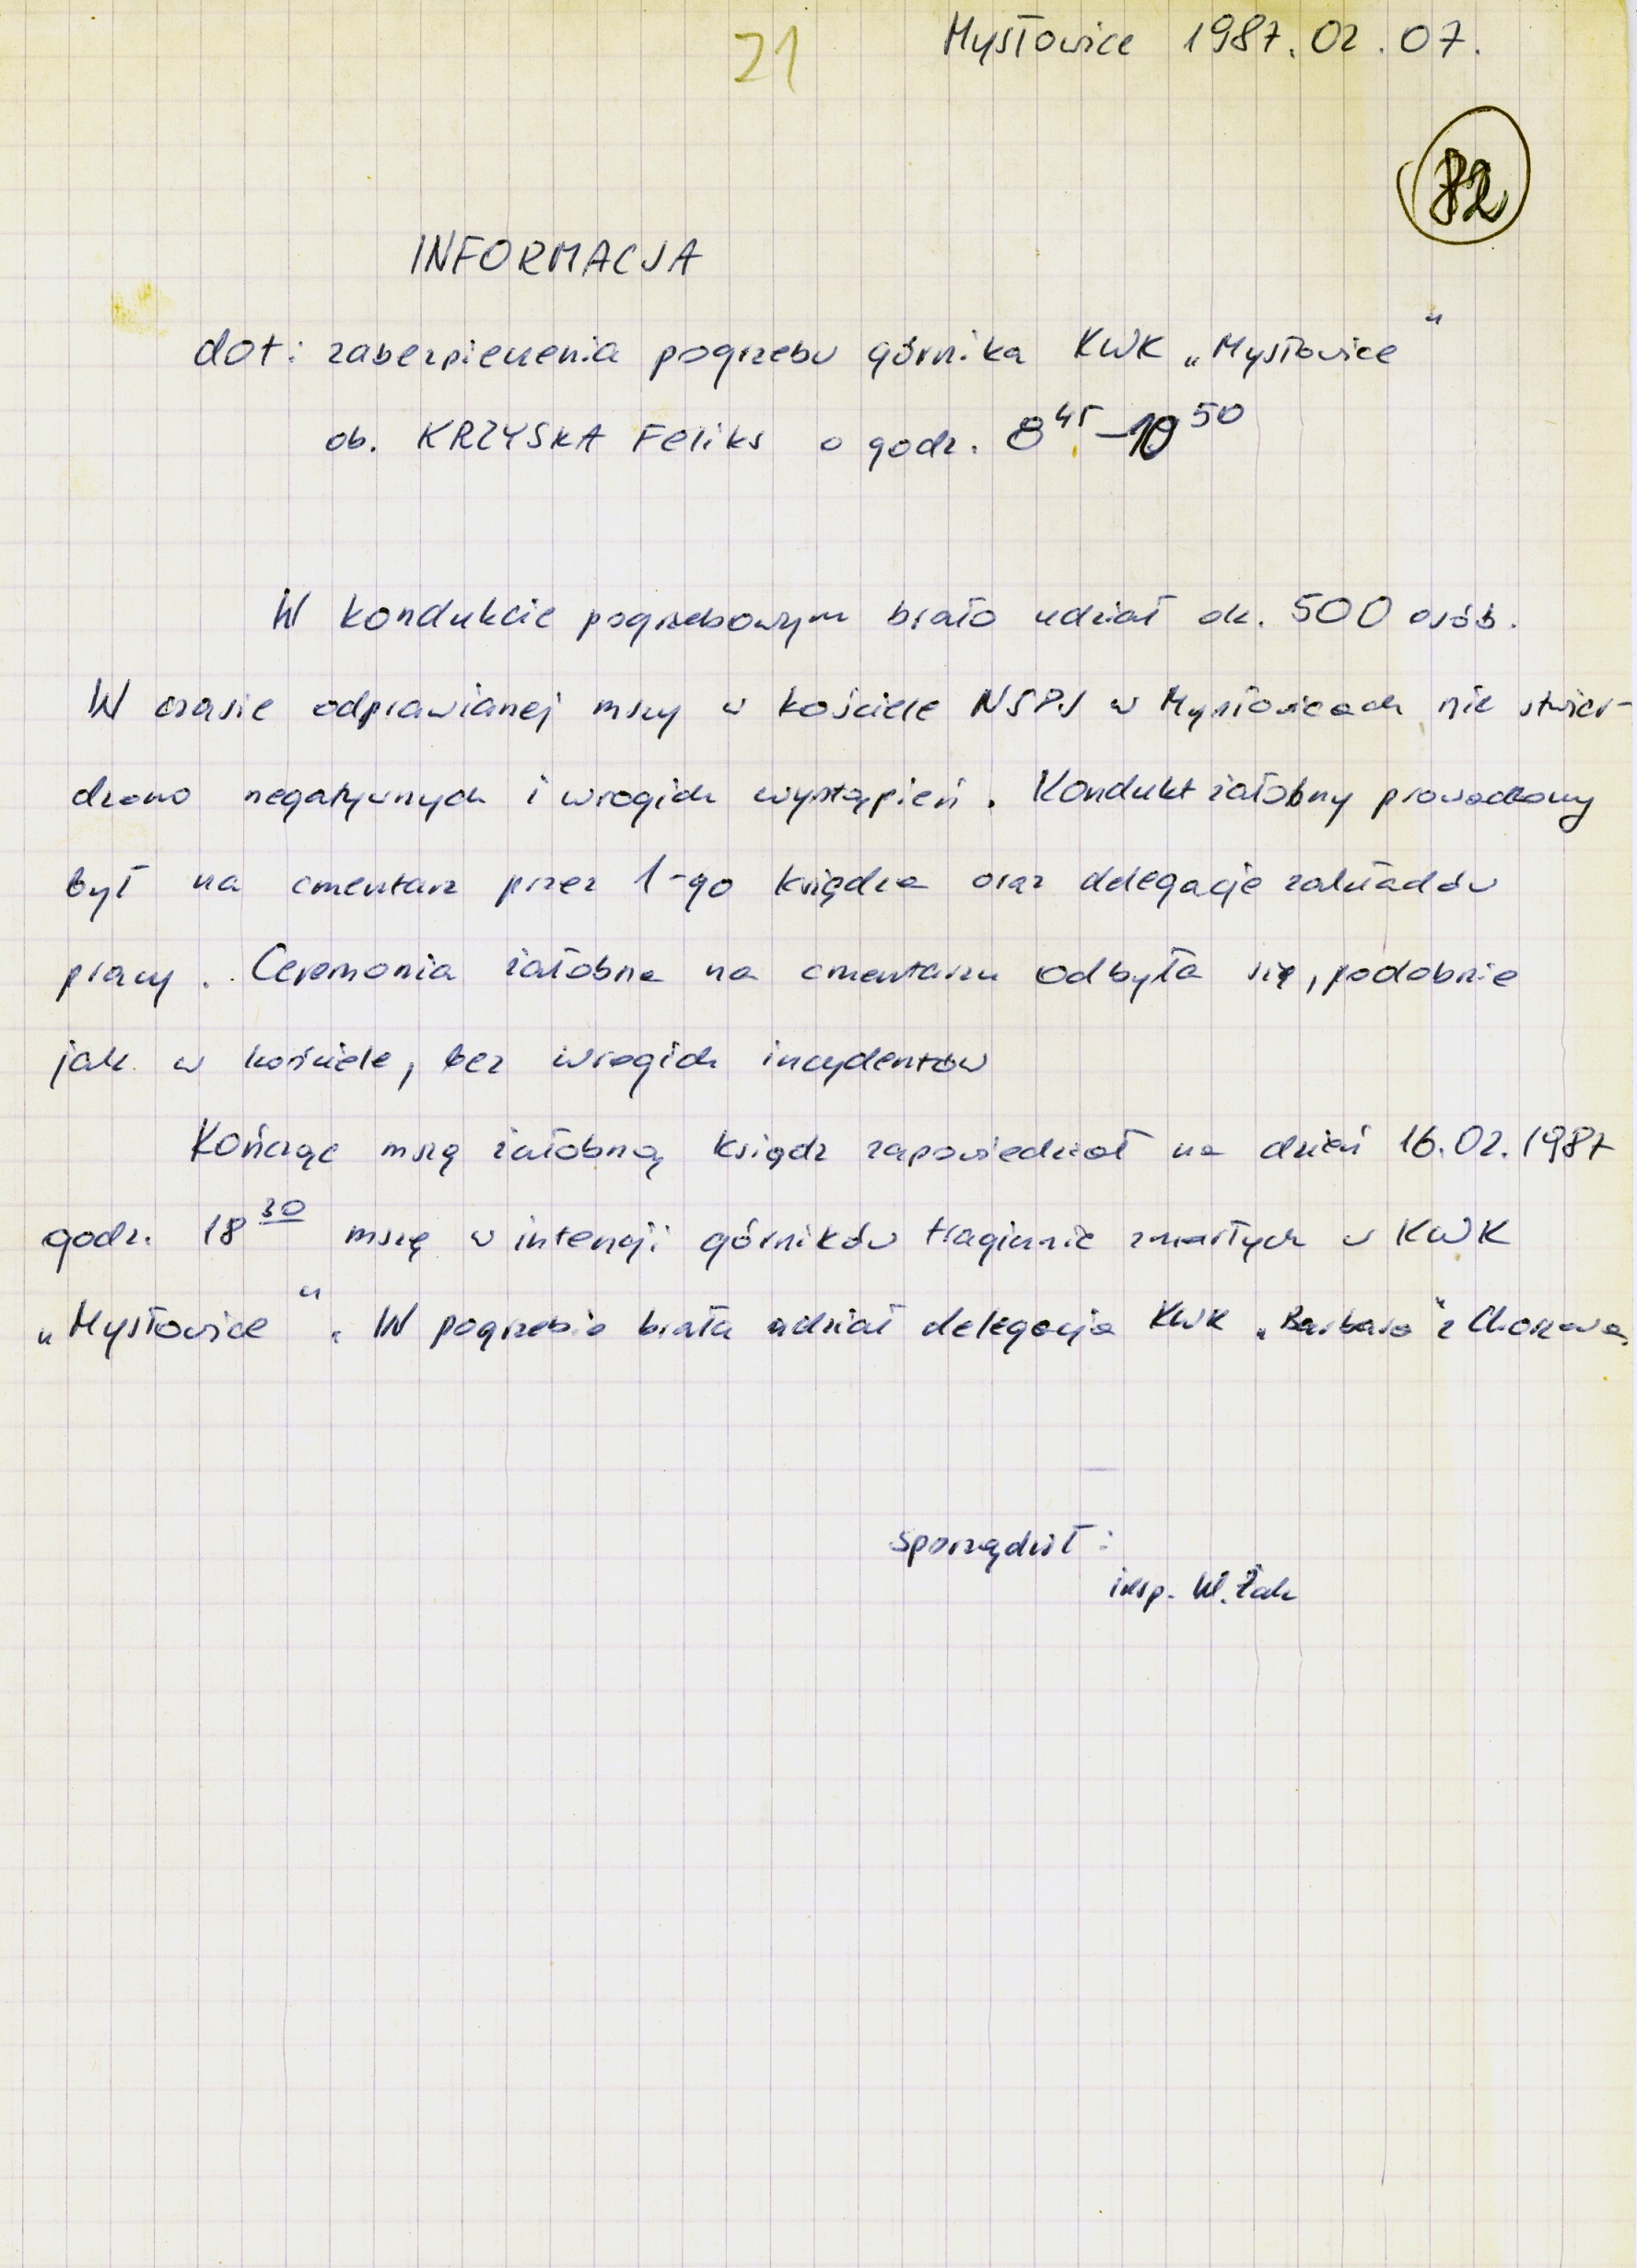 21
Mysłowice 1987.02.07.
82
INFORMACJA
dot: zabezpieczenia pogrzebu górnika KWK „Mysłowice"
ob. KRZYSKA Feliks o godz. 8 45 - 10 50
W kondukcie pogrzebowym brało udział ok. 500 osób.
W czasie odprawianej mszy w kościele NSPJ w Mysłowicach nie stwier-
dzono negatywnych i wrogich wystąpień. Kondukt żałobny prowadzony
był na cmentarz przez 1-go księdza oraz delegacje zakładów
pracy. Ceremonia żałobna na cmentarzu odbyła się, podobnie
jak w kościele, bez wrogich incydentów
Kończąc mszę żałobną ksiądz zapowiedział na dzień 16.02.1987
godz. 18 30 mszę w intencji górników tragicznie zmarłych w KWK
„Mysłowice". W pogrzebie brała udział delegacja KWK „Barbara" z Chorzowa.
Sporządził:
insp. W. Żak